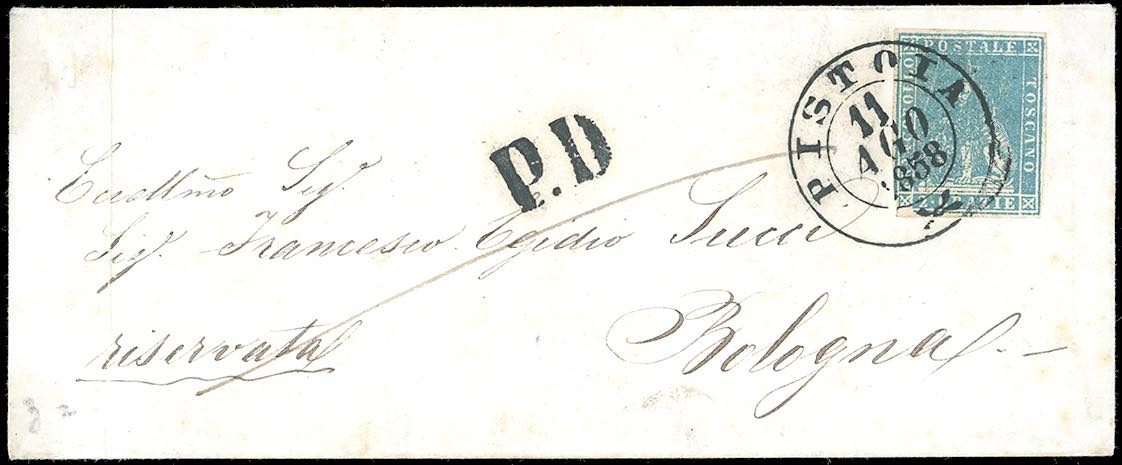 FRANCOBOLLO POSTALE TOSCANO
2 CRAZIE
PISTOIA
11
AGO
1858
P.D
Eccellmo Sig.
Sig. Francesco Egidio Succi
riservata
Bologna